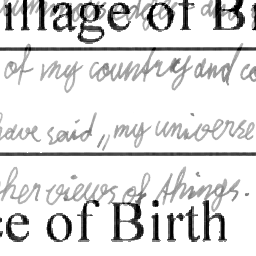 illage of Bi
of my country and co
have said „my universe
her views of things.
ce of Birth